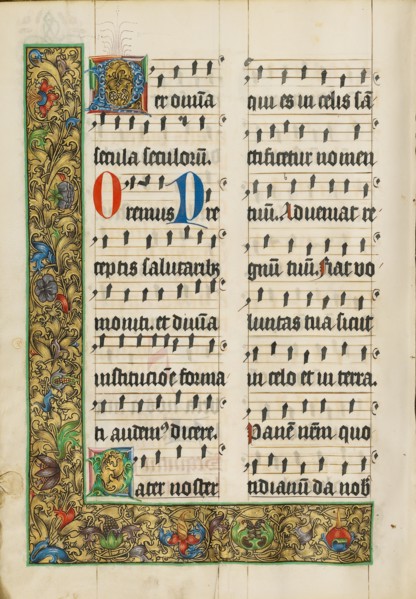 Per om̅ia
secula seculorū.
Oremus Pre
ceptis salutaribꝫ
moniti. et diuīa
institutiōe forma
ti audem⁹ dicere.
Pater noster
qui es in celis sā
ctificetur nomen
tuū. Adueniat re
gnū tuū. Fiat vo
luntas tua sicut
in celo et in terra.
Panē nr̄m quo
tidianū da nob̄